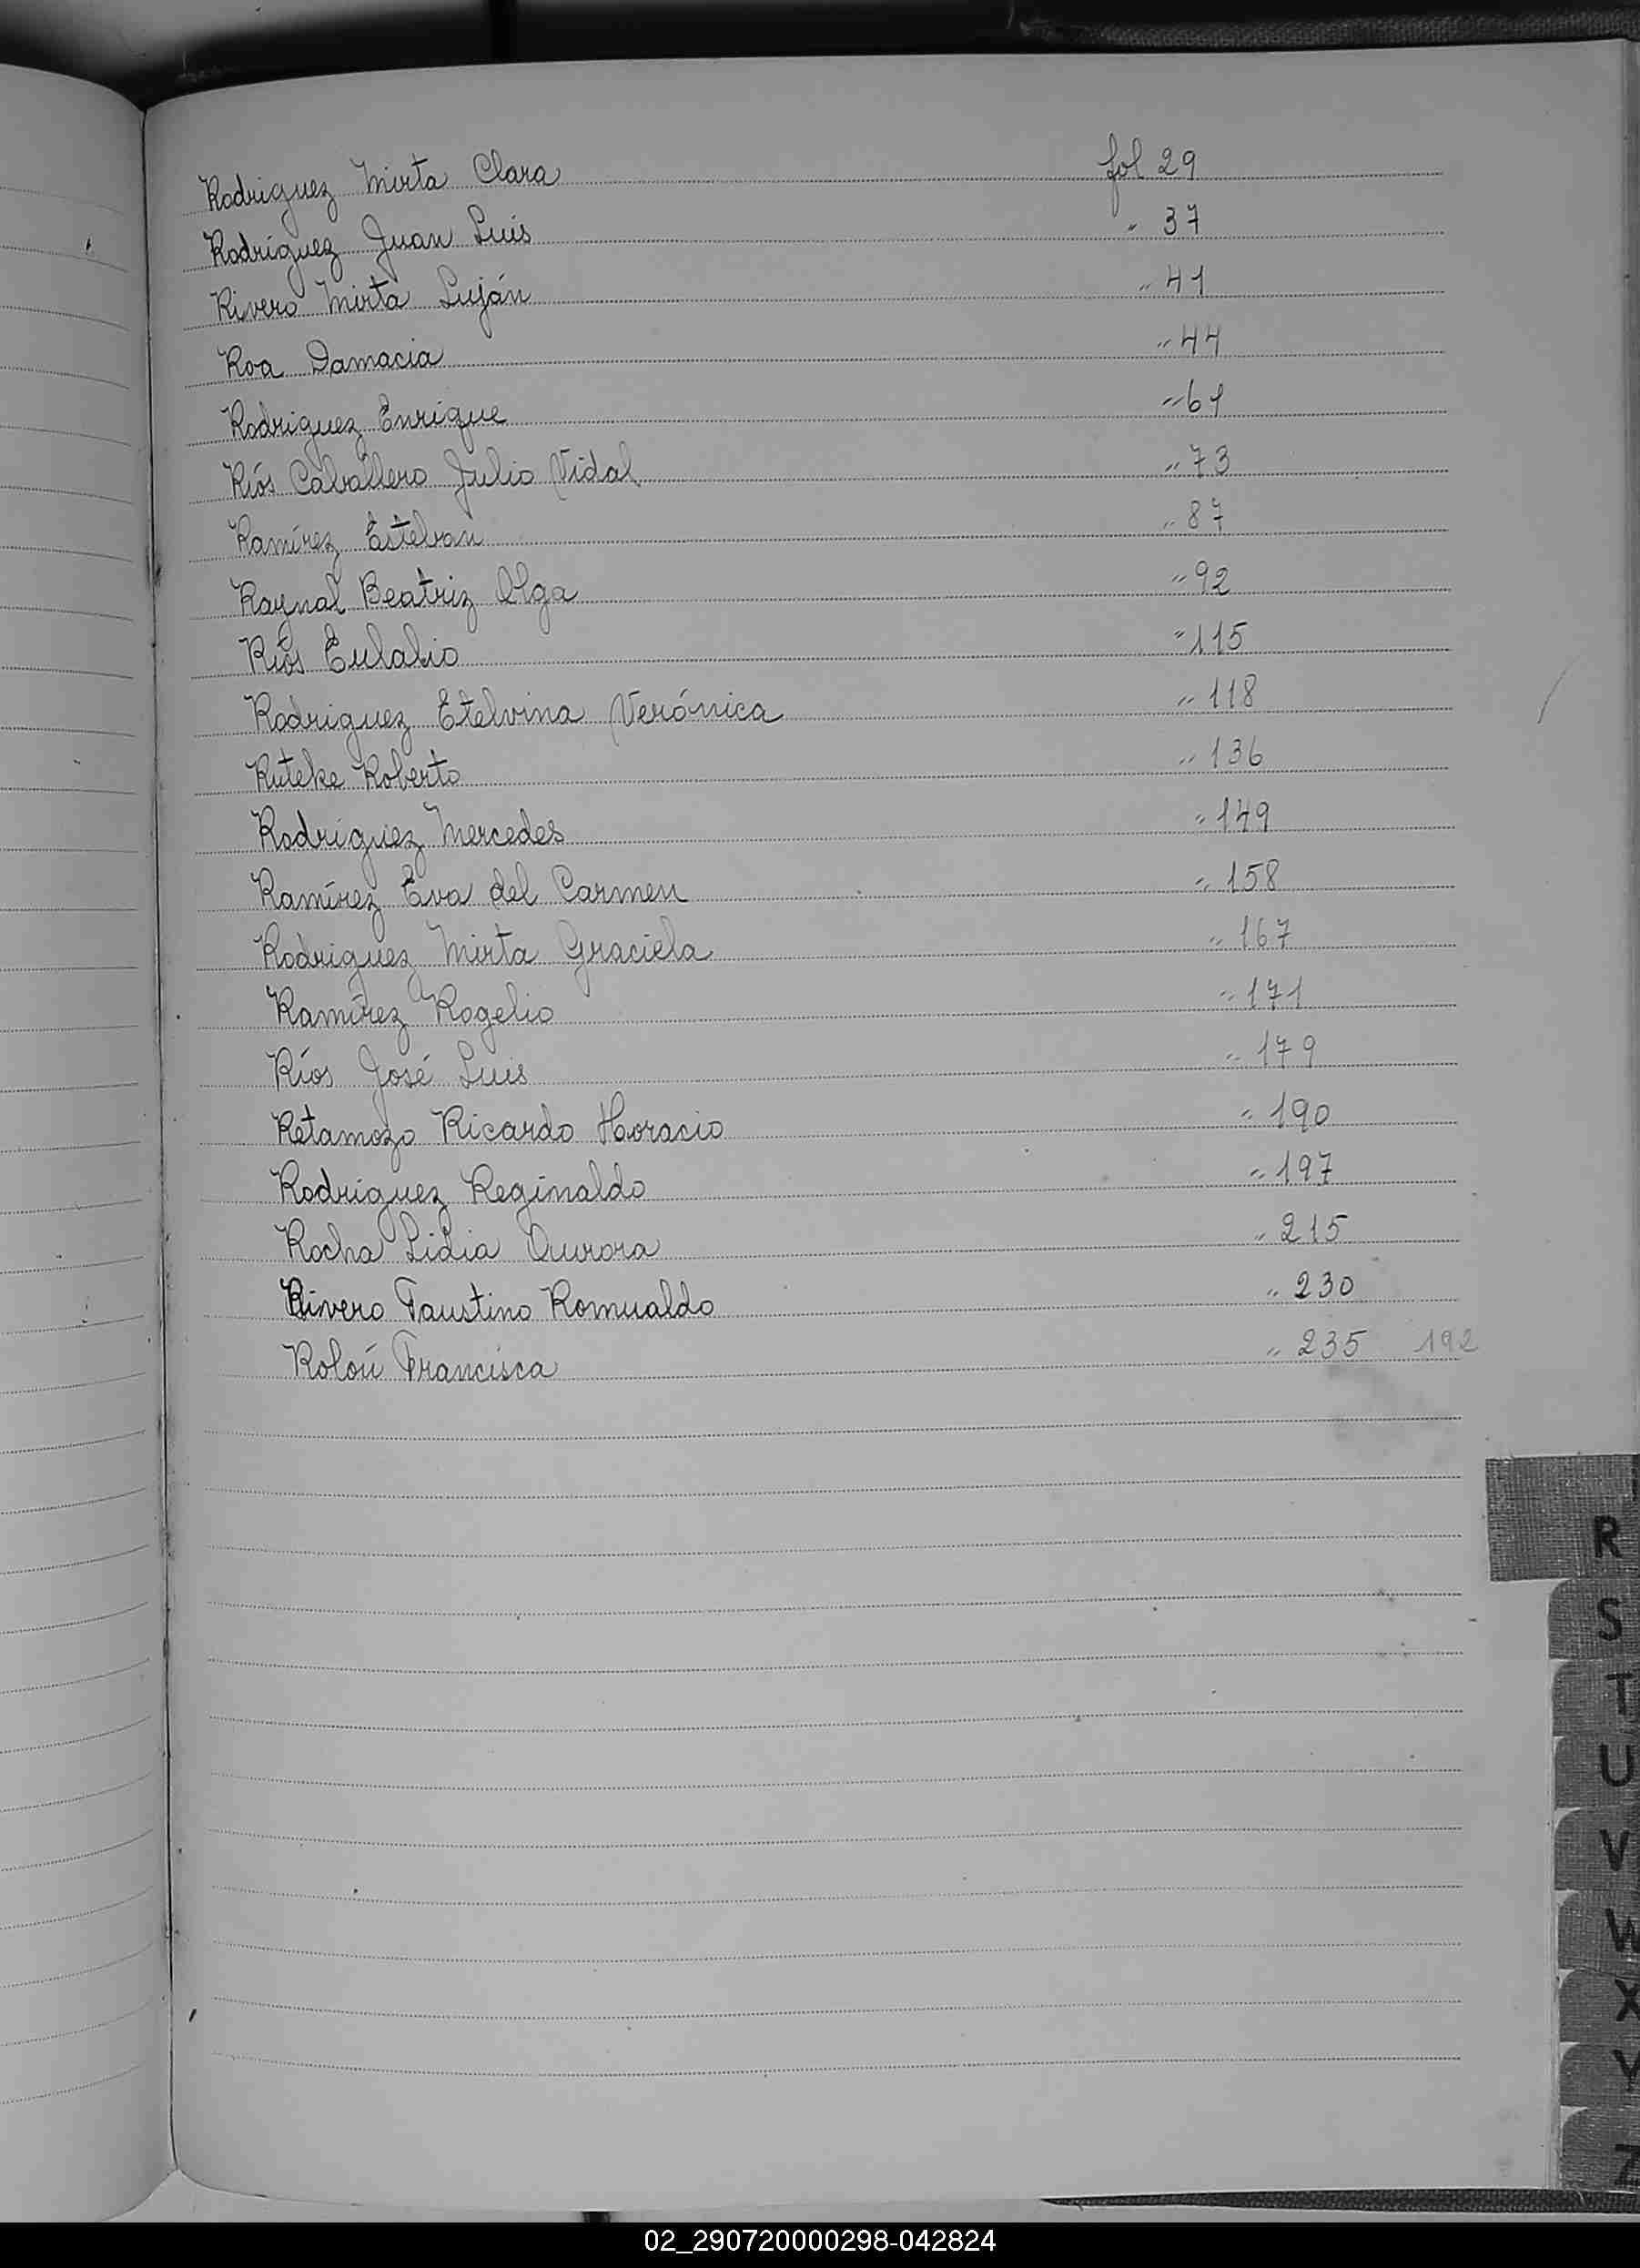 Rodriguez Mirta Clara fol 29
Rodriguez Juan Luis " 37
Rivero Mirta Luján " 41
Roa Damacia " 44
Rodriguez Enrique " 61
Ríos Caballero Julio Vidal " 73
Ramírez Esteban " 87
Raynal Beatriz Olga " 92
Ríos Eulalio " 115
Rodriguez Etelvina Verónica " 118
Ruteke Roberto " 136
Rodriguez Mercedes " 149
Ramírez Eva del Carmen " 158
Rodriguez Mirta Graciela " 167
Ramírez Rogelio " 171
Ríos José Luis " 179
Retamozo Ricardo Horacio " 190
Rodriguez Reginaldo " 197
Rocha Lidia Aurora " 215
Rivero Faustino Romualdo " 230
Rolou Francisca " 235 192
R
S
T
U
V
W
X
Y
Z
02_290720000298-042824